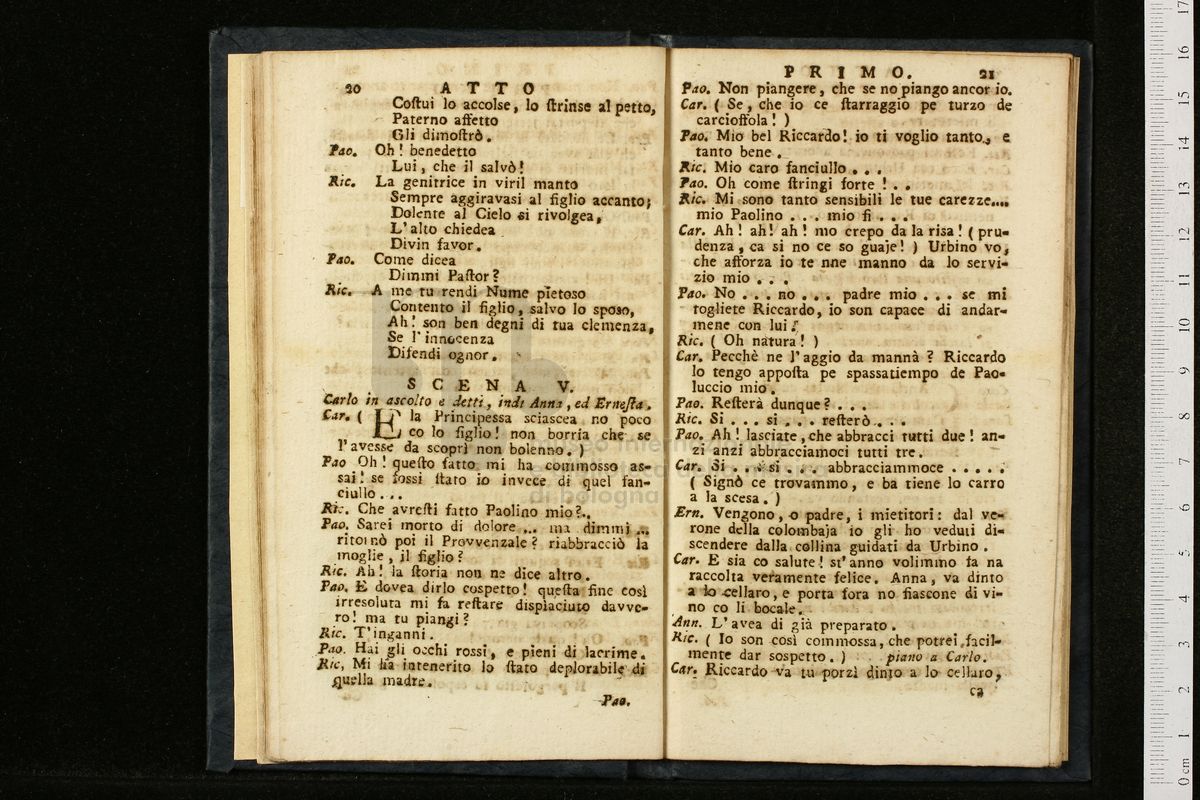 20 ATTO
Coſtui lo accolse, lo ſtrinse al petto,
Paterno affetto
Gli dimoſtrò.
Pao. Oh! benedetto
Lui, che il salvò!
Ric. La genitrice in viril manto
Sempre aggiravasi al figlio accanto;
Dolente al Cielo si rivolgea,
L'alto chiedea
Divin favor.
Pao. Come dicea
Dimmi Paſtor?
Ric. A me tu rendi Nume pietoso
Contento il figlio, salvo lo sposo,
Ah! son ben degni di tua clemenza,
Se l'innocenza
Difendi ognor.
SCENA V.
Carlo in ascolto e detti, indi Anna, ed Erneſta.
Car. ( E la Principessa sciascea no poco
co lo figlio! non borría che se
l'avesse da scoprì non bolenno. )
Pao Oh! queſto fatto mi ha commosso as-
sai! se fossi ſtato io invece di quel fan-
ciullo...
Ric. Che avreſti fatto Paolino mio?..
Pao. Sarei morto di dolore ... ma dimmi ...
ritornò poi il Provvenzale? riabbracciò la
moglie, il figlio?
Ric. Ah! la ſtoria non ne dice altro.
Pao. E dovea dirlo cospetto! queſta fine così
irresoluta mi fa reſtare dispiaciuto davve-
ro! ma tu piangi?
Ric. T'inganni.
Pao. Hai gli occhi rossi, e pieni di lacrime.
Ric. Mi ha intenerito lo ſtato deplorabile di
quella madre.
Pao.
PRIMO. 21
Pao. Non piangere, che se no piango ancor io.
Car. ( Se, che io ce ſtarraggio pe turzo de
carcioffola! )
Pao. Mio bel Riccardo! io ti voglio tanto, e
tanto bene.
Ric. Mio caro fanciullo ...
Pao. Oh come ſtringi forte! ..
Ric. Mi sono tanto sensibili le tue carezze....
mio Paolino ... mio fi ...
Car. Ah! ah! ah! mo crepo da la risa! ( pru-
denza, ca si no ce so guaje! ) Urbino vo,
che afforza io te nne manno da lo servi-
zio mio ...
Pao. No ... no ... padre mio ... se mi
togliete Riccardo, io son capace di andar-
mene con lui!
Ric. ( Oh natura! )
Car. Pecchè ne l'aggio da mannà? Riccardo
lo tengo appoſta pe spassatiempo de Pao-
luccio mio.
Pao. Reſterà dunque? ...
Ric. Si ... si ... reſterò ...
Pao. Ah! lasciate, che abbracci tutti due! an-
zi anzi abbracciamoci tutti tre.
Car. Si ... si ... abbracciammoce .....
( Signò ce trovammo, e ba tiene lo carro
a la scesa. )
Ern. Vengono, o padre, i mietitori: dal ve-
rone della colombaja io gli ho veduti di-
scendere dalla collina guidati da Urbino.
Car. E sia co salute! ſt'anno volimmo fa na
raccolta veramente felice. Anna, va dinto
a lo cellaro, e porta fora no fiascone di vi-
no co li bocale.
Ann. L'avea di già preparato.
Ric. ( Io son così commossa, che potrei facil-
mente dar sospetto. ) piano a Carlo.
Car. Riccardo va tu porzì dinto a lo cellaro,
ca